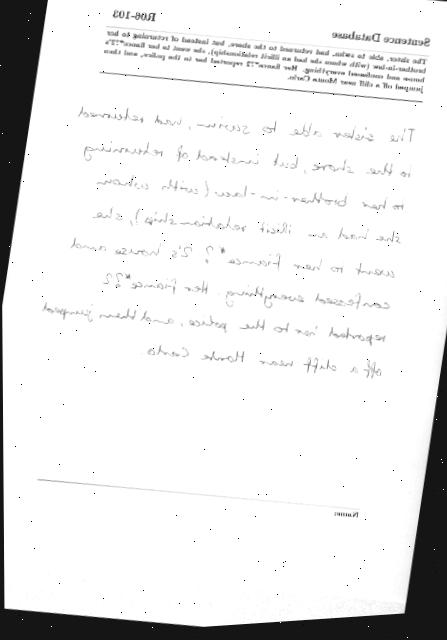 Sentence Database R06-103
The sister, able to swim, had returned to the shore, but instead of returning to her
brother-in-law (with whom she had an illicit relationship), she went to her fiance*?2's
house and confessed everything. Her fiance*?2 reported her to the police, and then
jumped off a cliff near Monte Carlo.
The sister able to swim, had returned
to the shore, but instead of returning
to her brother-in-law (with whom
she had an illicit relationship), she
went to her fiance*?2's house and
confessed everything. Her fiance*?2
reported her to the police, and then jumped
off a cliff near Monte Carlo
Name: